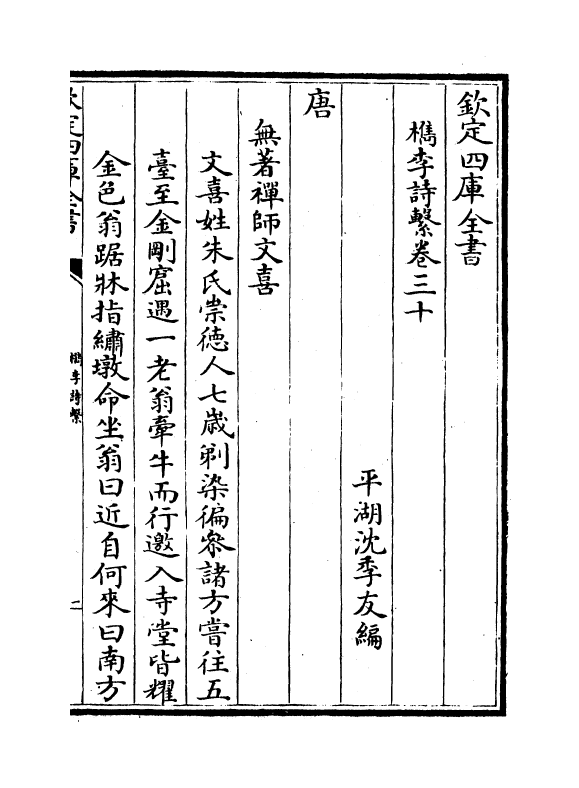 欽定四庫全書
檇李詩繫卷三十
平湖沈季友編
唐
無著禪師文喜
文喜姓朱氏崇徳人七歳剃染徧叅諸方嘗往五
臺至金剛窟遇一老翁牽牛而行邀入寺堂皆耀
金色翁踞牀指繡墩命坐翁曰近自何來曰南方
欽定四庫全書
檇李詩繫